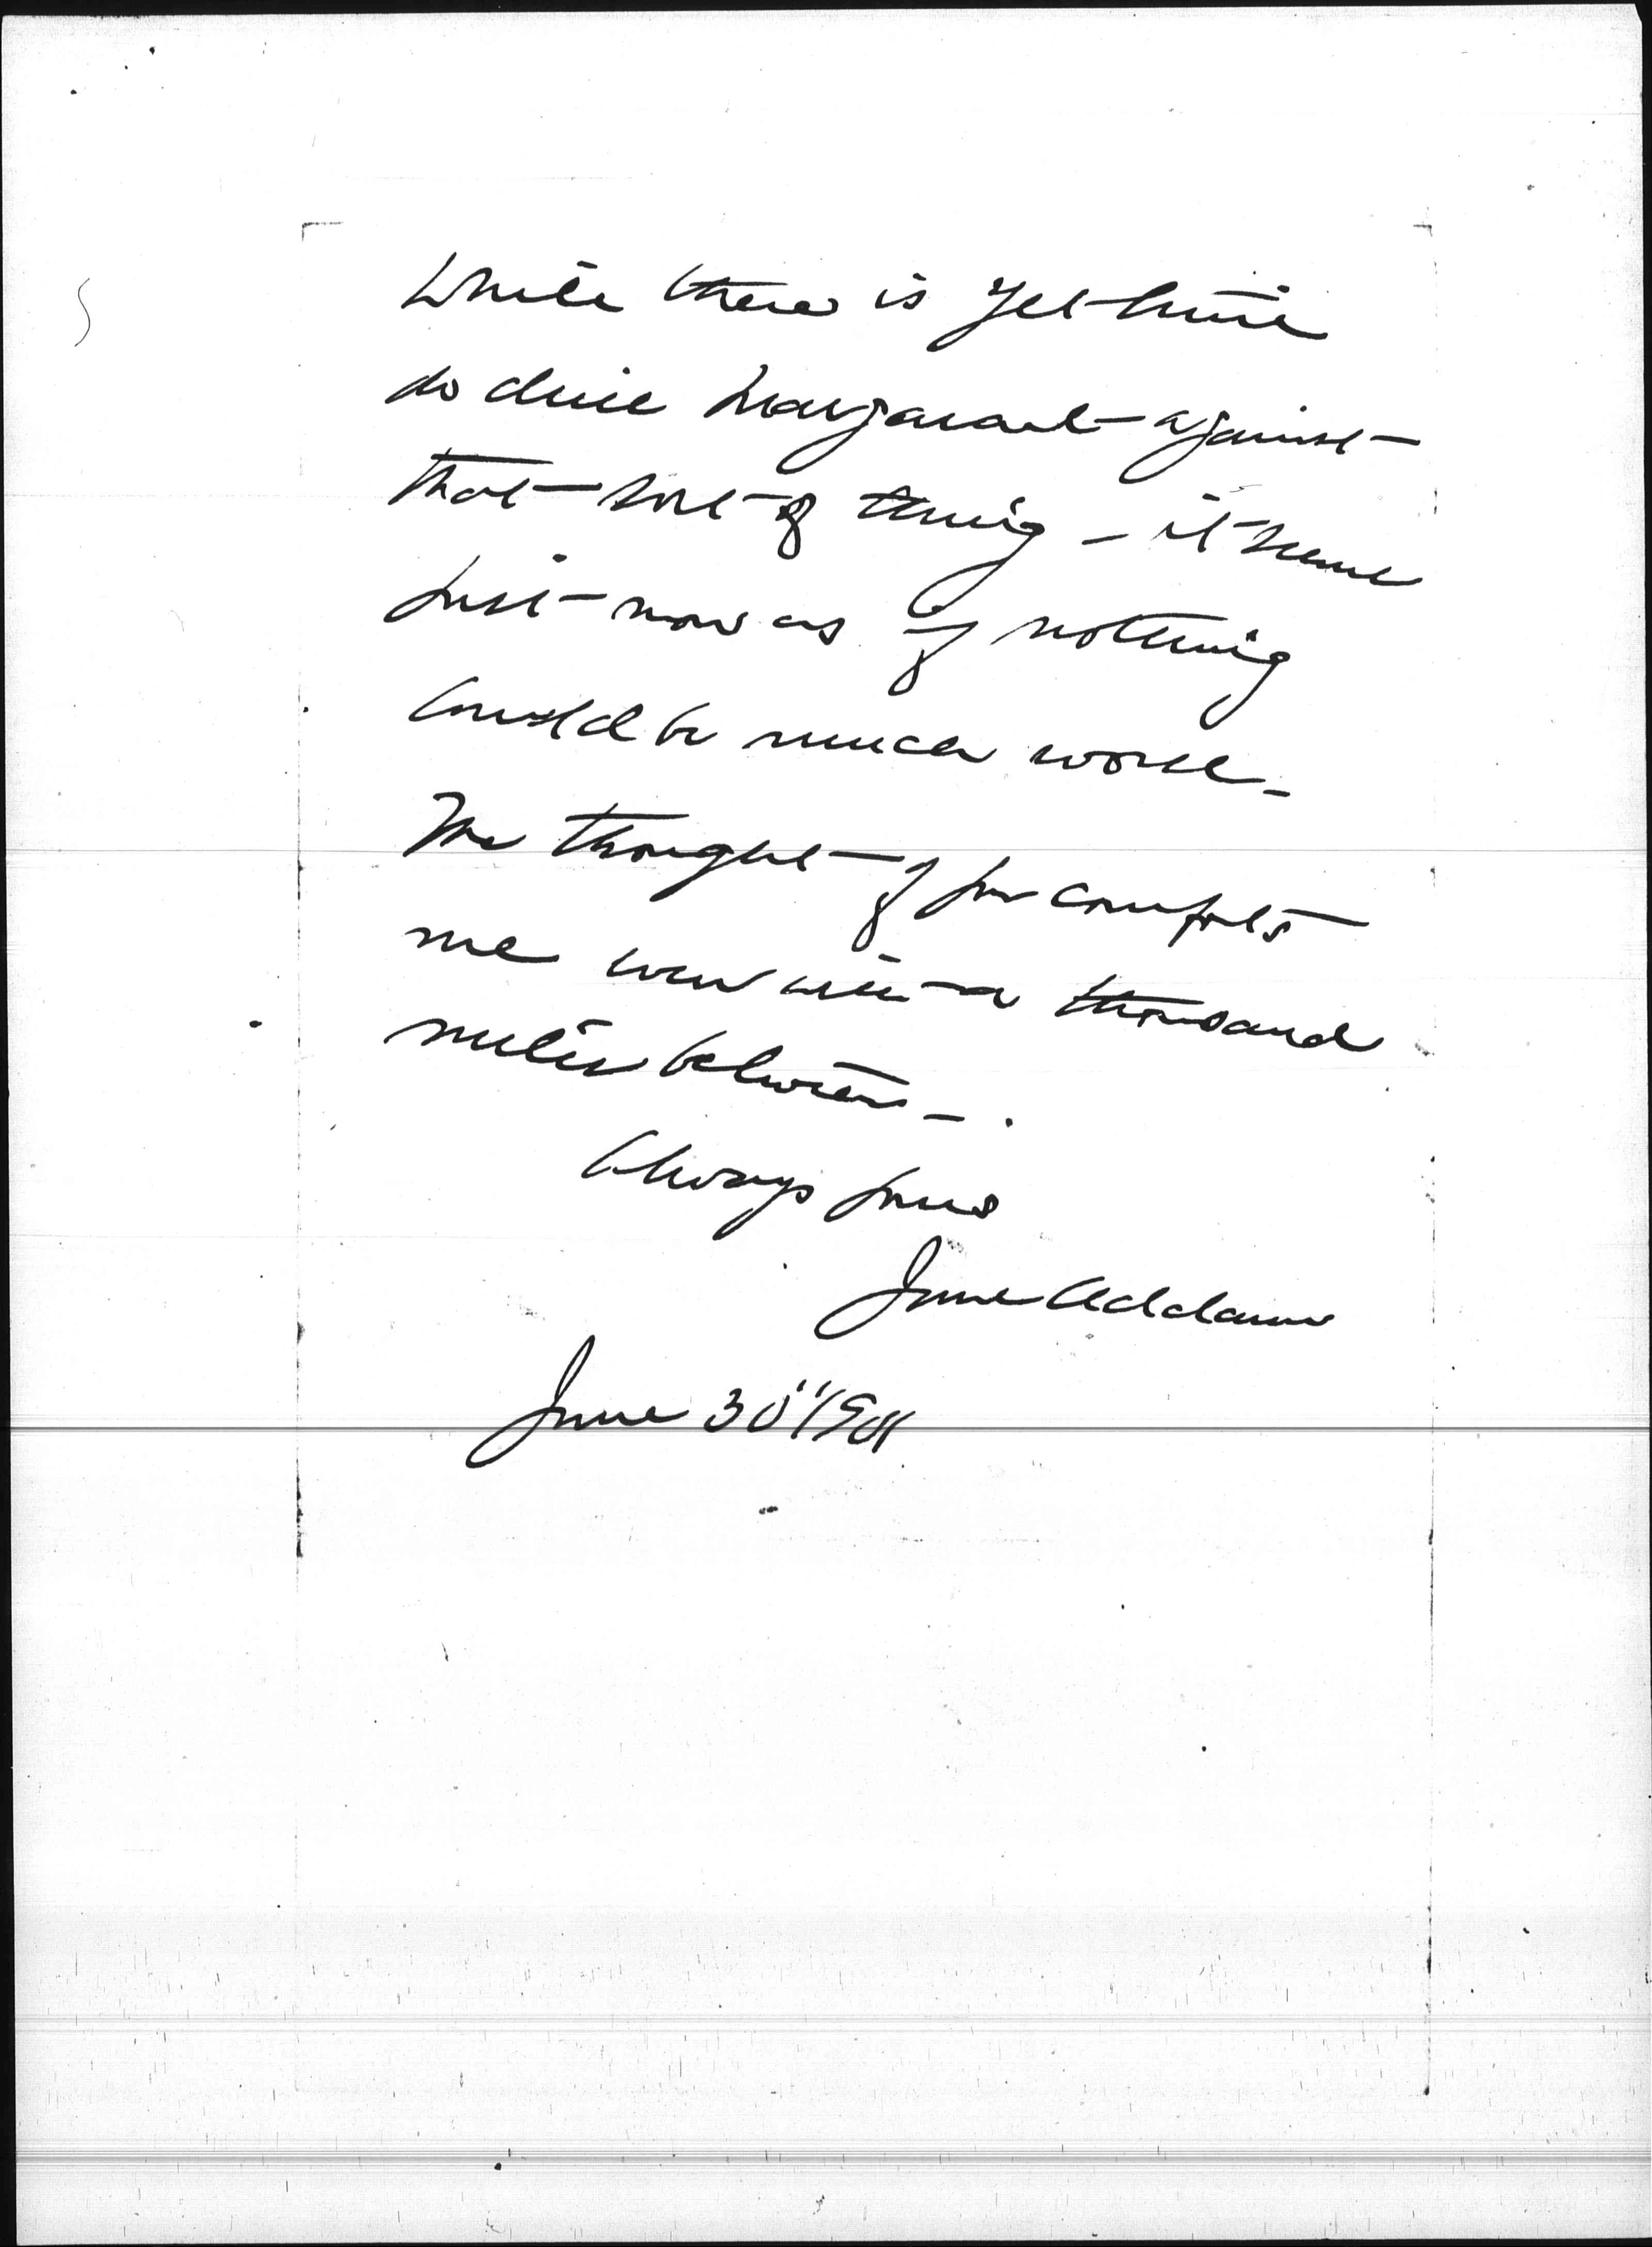 While there is yet time
do drill Margaret against
that sort of thing – it seems
just now as if nothing
could be much worse –
The thought of you comforts
me even with a thousand
miles between –.
Always yours
Jane Addams
June 30" 1901